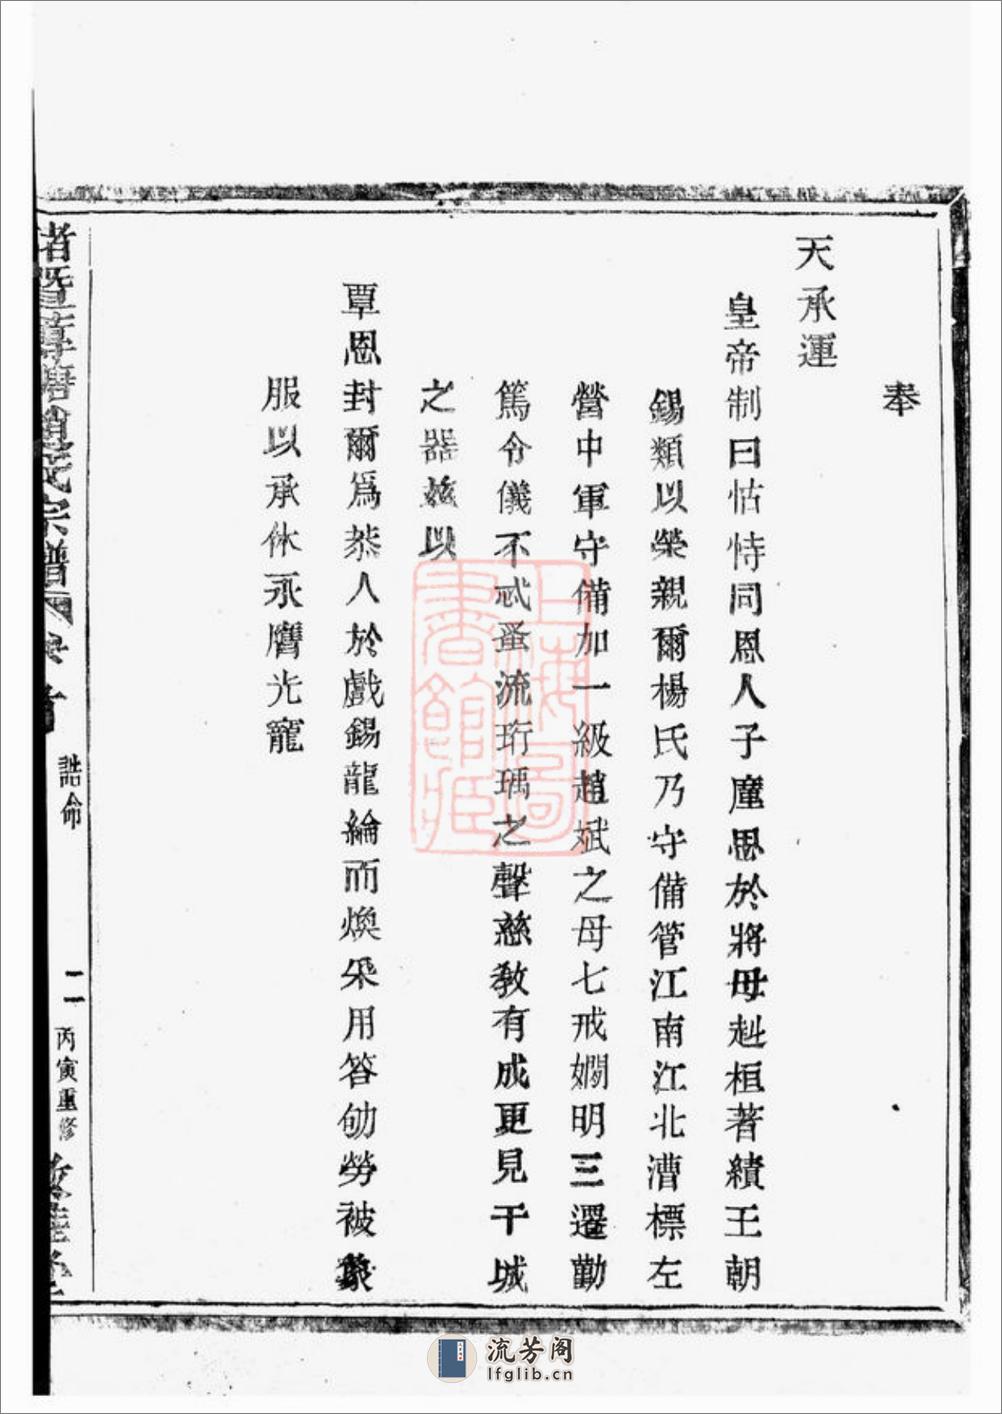 奉
天承運
皇帝制曰怙恃同恩人子廑思於將母赳桓著績王朝
錫類以榮親爾楊氏乃守備管江南江北漕標左
營中軍守備加一級趙斌之母七戒嫺明三遷勤
篤令儀不忒蚤流珩瑀之聲慈教有成更見干城
之器兹以
覃恩封爾爲恭人於戲錫龍綸而煥采用答劬勞被象
服以承休永膺光寵
諸暨 塘趙氏宗譜
誥命
二
丙寅重修
上海圖書館藏
流芳阁
lfglib.cn